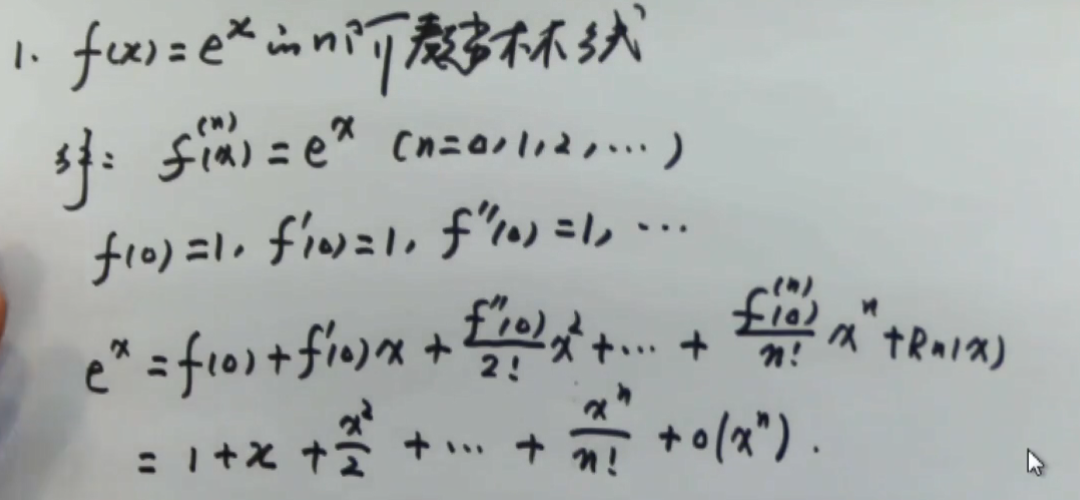 1. f(x)=e^x in n阶麦克劳林公式
解: f^(n)(x)=e^x (n=0,1,2,…)
f(0)=1, f'(0)=1, f''(0)=1, …
e^x=f(0)+f'(0)x+f''(0)/2! x^2+…+f^(n)(0)/n! x^n+Rn(x)
=1+x+x^2/2+…+x^n/n!+o(x^n).